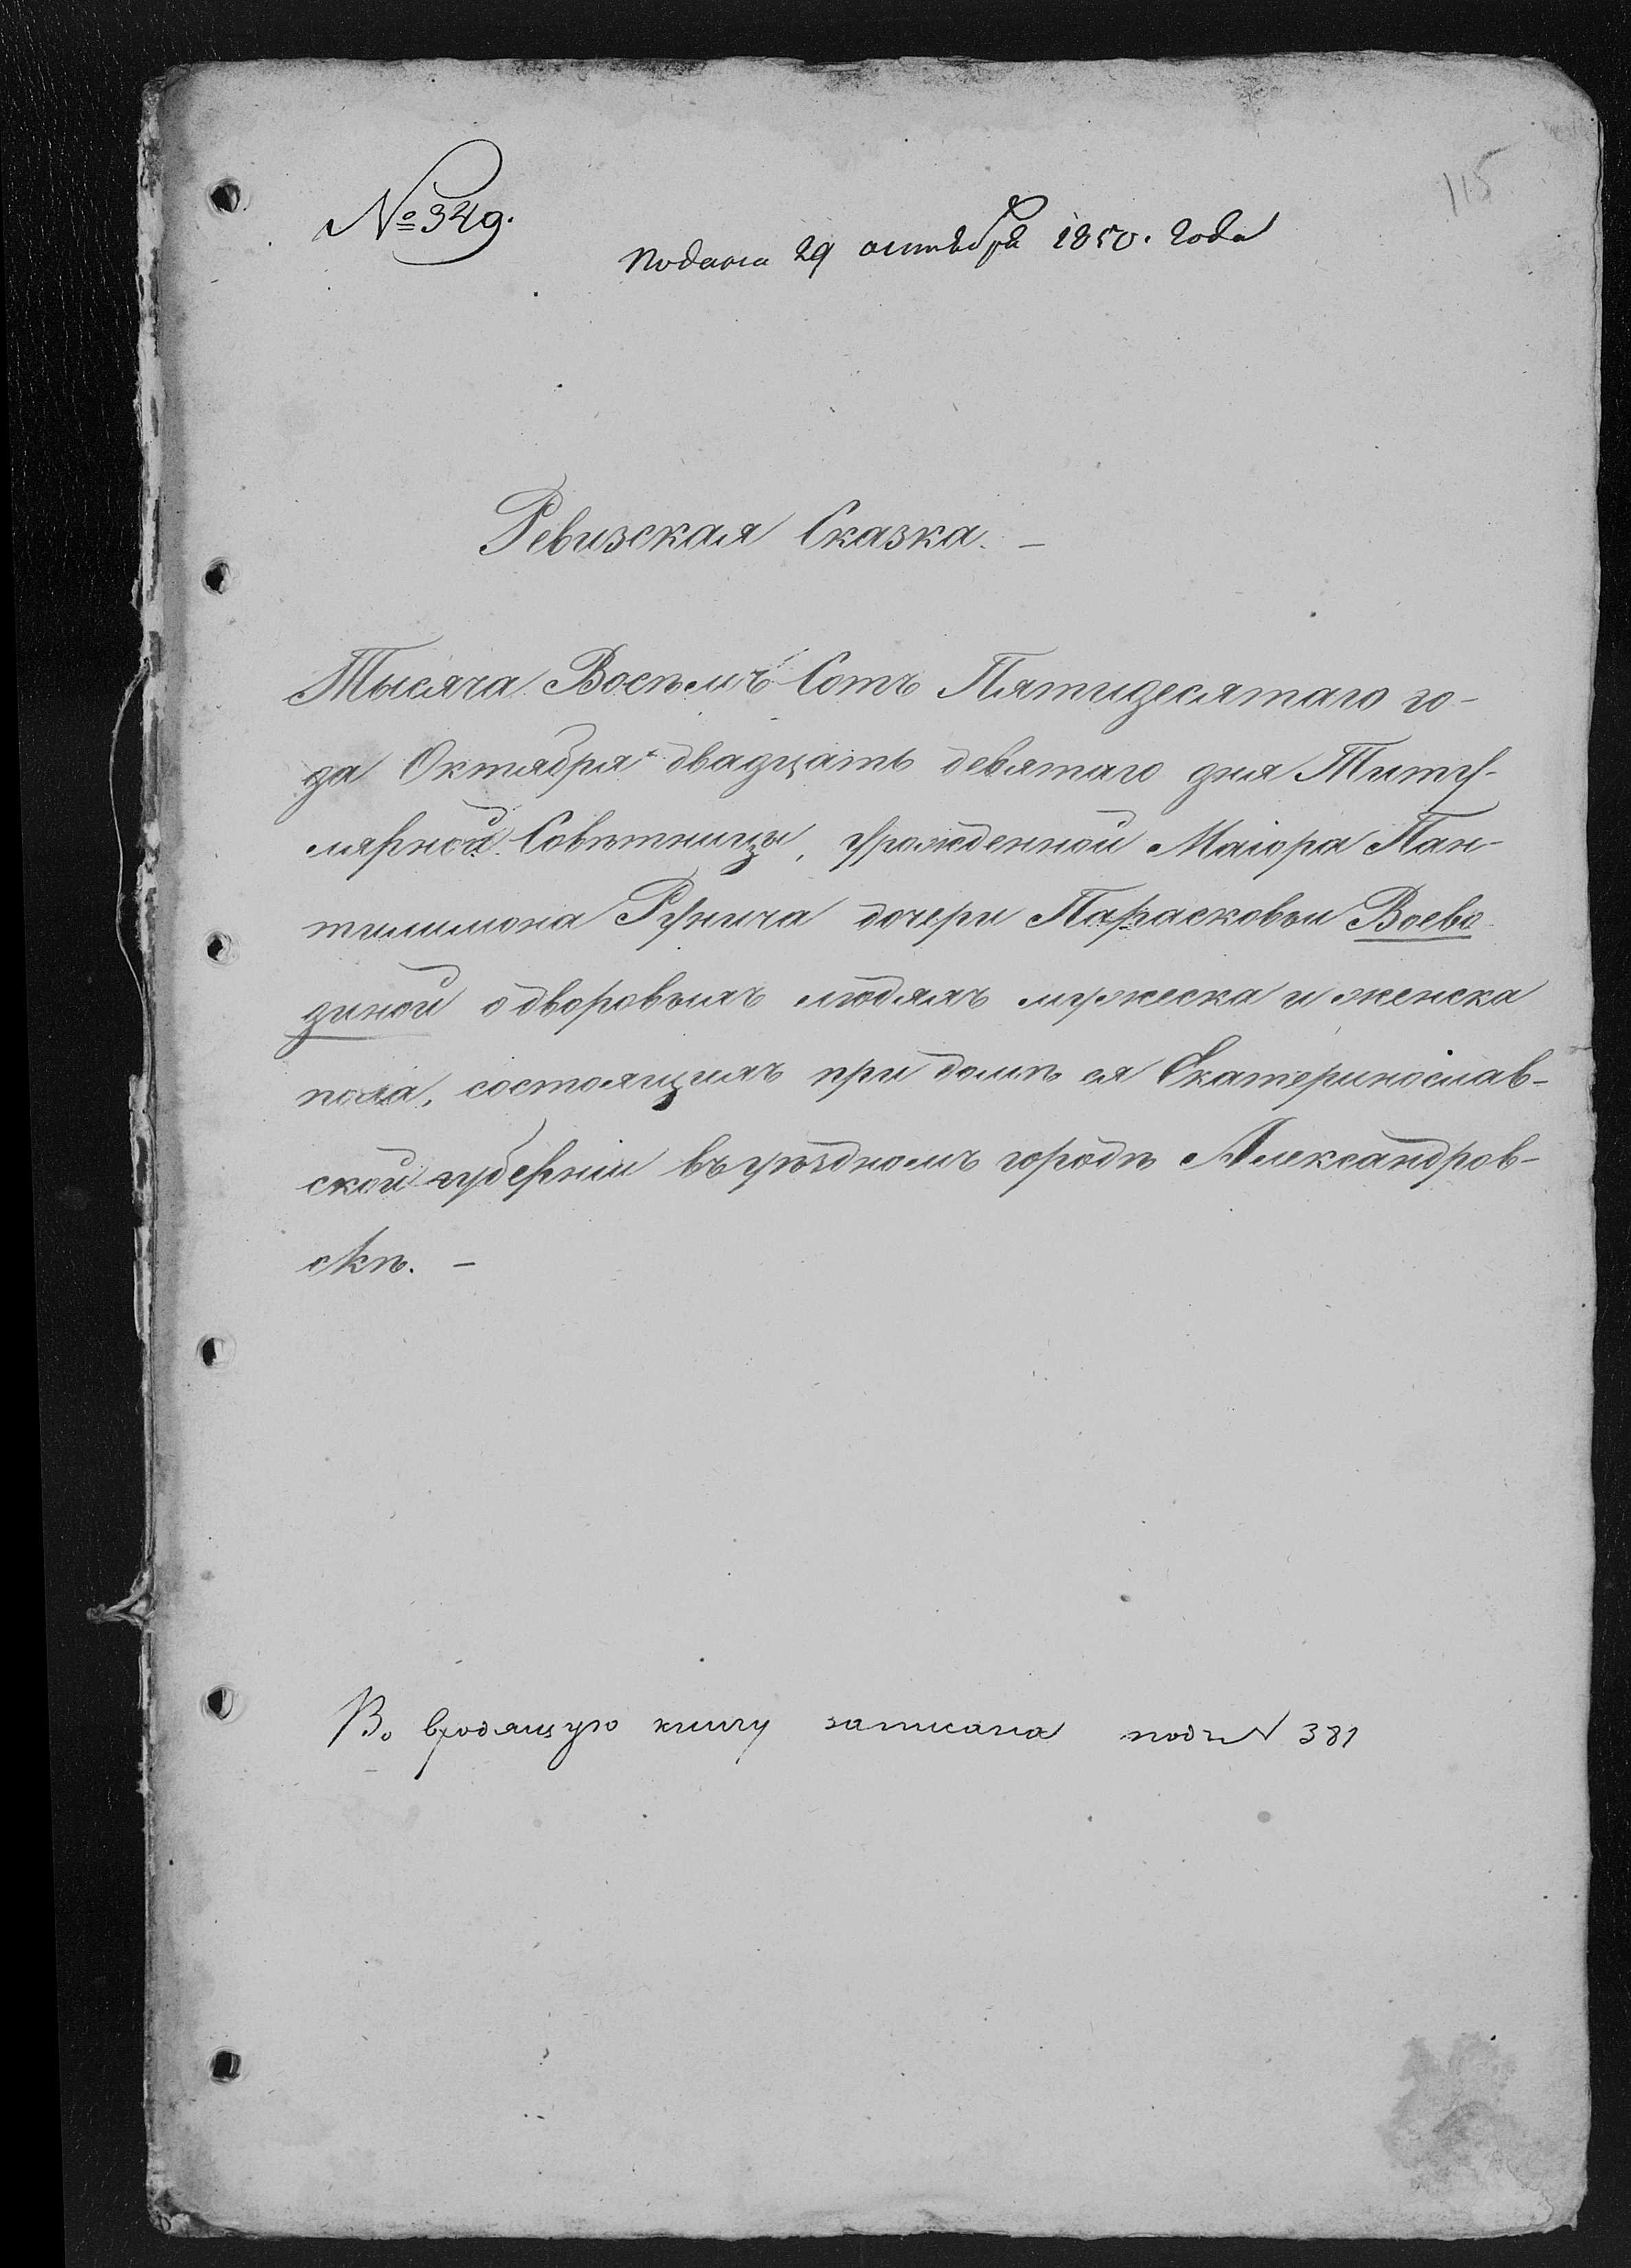 115
№ 349.
Подана 29 октября 1850. года
Ревизская Сказка. —
Тысяча Восѣмъ Сотъ Пятидесятаго го-
да Октября двадцать девятаго дня Титу-
лярной Совѣтницы, урожденной Маіора Пан-
тилимона Рунича дочери Парасковьи Воево
диной о дворовыхъ людяхъ мужеска и женска
пола, состоящихъ при домѣ ея Екатеринослав-
ской губерніи въ уѣздномъ городѣ Александров-
скѣ. —
Во входящую книгу записана подъ N 381